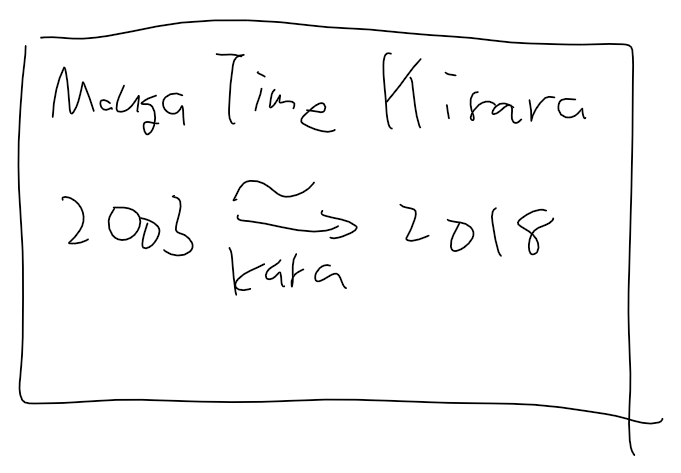 Manga Time Kirara
2003 ~ → 2018
kara